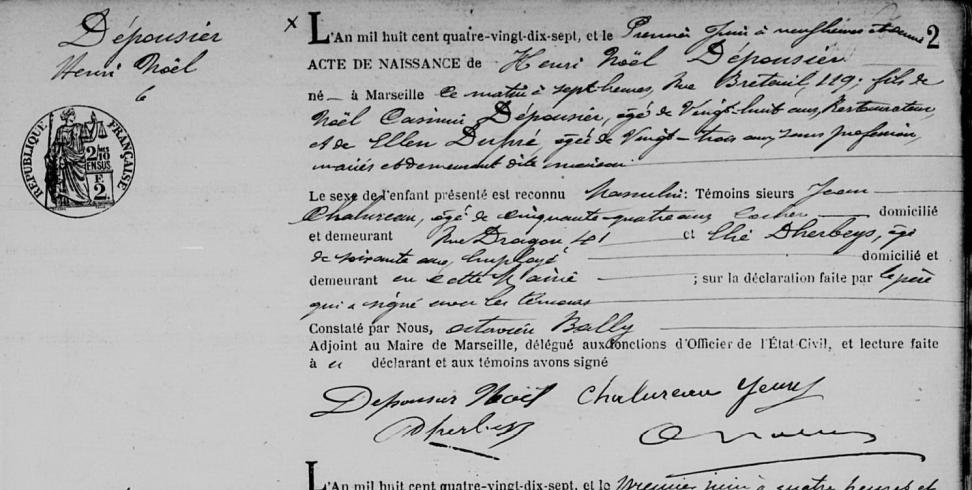 Dépousier
Henri Noël
6
RÉPUBLIQUE FRANÇAISE
2/10
EN SUS
F.
2
2
L'An mil huit cent quatre-vingt-dix-sept, et le Premier Juin à neuf heures et demie
ACTE DE NAISSANCE de Henri Noël Dépousier
né à Marseille ce matin à sept heures, Rue Breteuil, 119; fils de
Noël Casimir Dépousier, âgé de Vingt-huit ans, Restaurateur,
et de Ellen Dupré, âgée de Vingt-trois ans, sans profession,
mariés et demeurant dite maison
Le sexe de l'enfant présenté est reconnu Masculin: Témoins sieurs Jean
Chalureau, âgé de cinquante quatre ans cocher domicilié
et demeurant Rue Dragon 41 et Elié Dherbeys, âgé
de soixante ans, Employé domicilié et
demeurant en cette Mairie ; sur la déclaration faite par le père
qui a signé avec les témoins
Constaté par Nous, octavien Bally
Adjoint au Maire de Marseille, délégué aux fonctions d'Officier de l'État-Civil, et lecture faite
à déclarant et aux témoins avons signé
Depousier Noël Chalureau
Dherbeys
L'An mil huit cent quatre-vingt-dix-sept, et le premier juin à quatre heures et